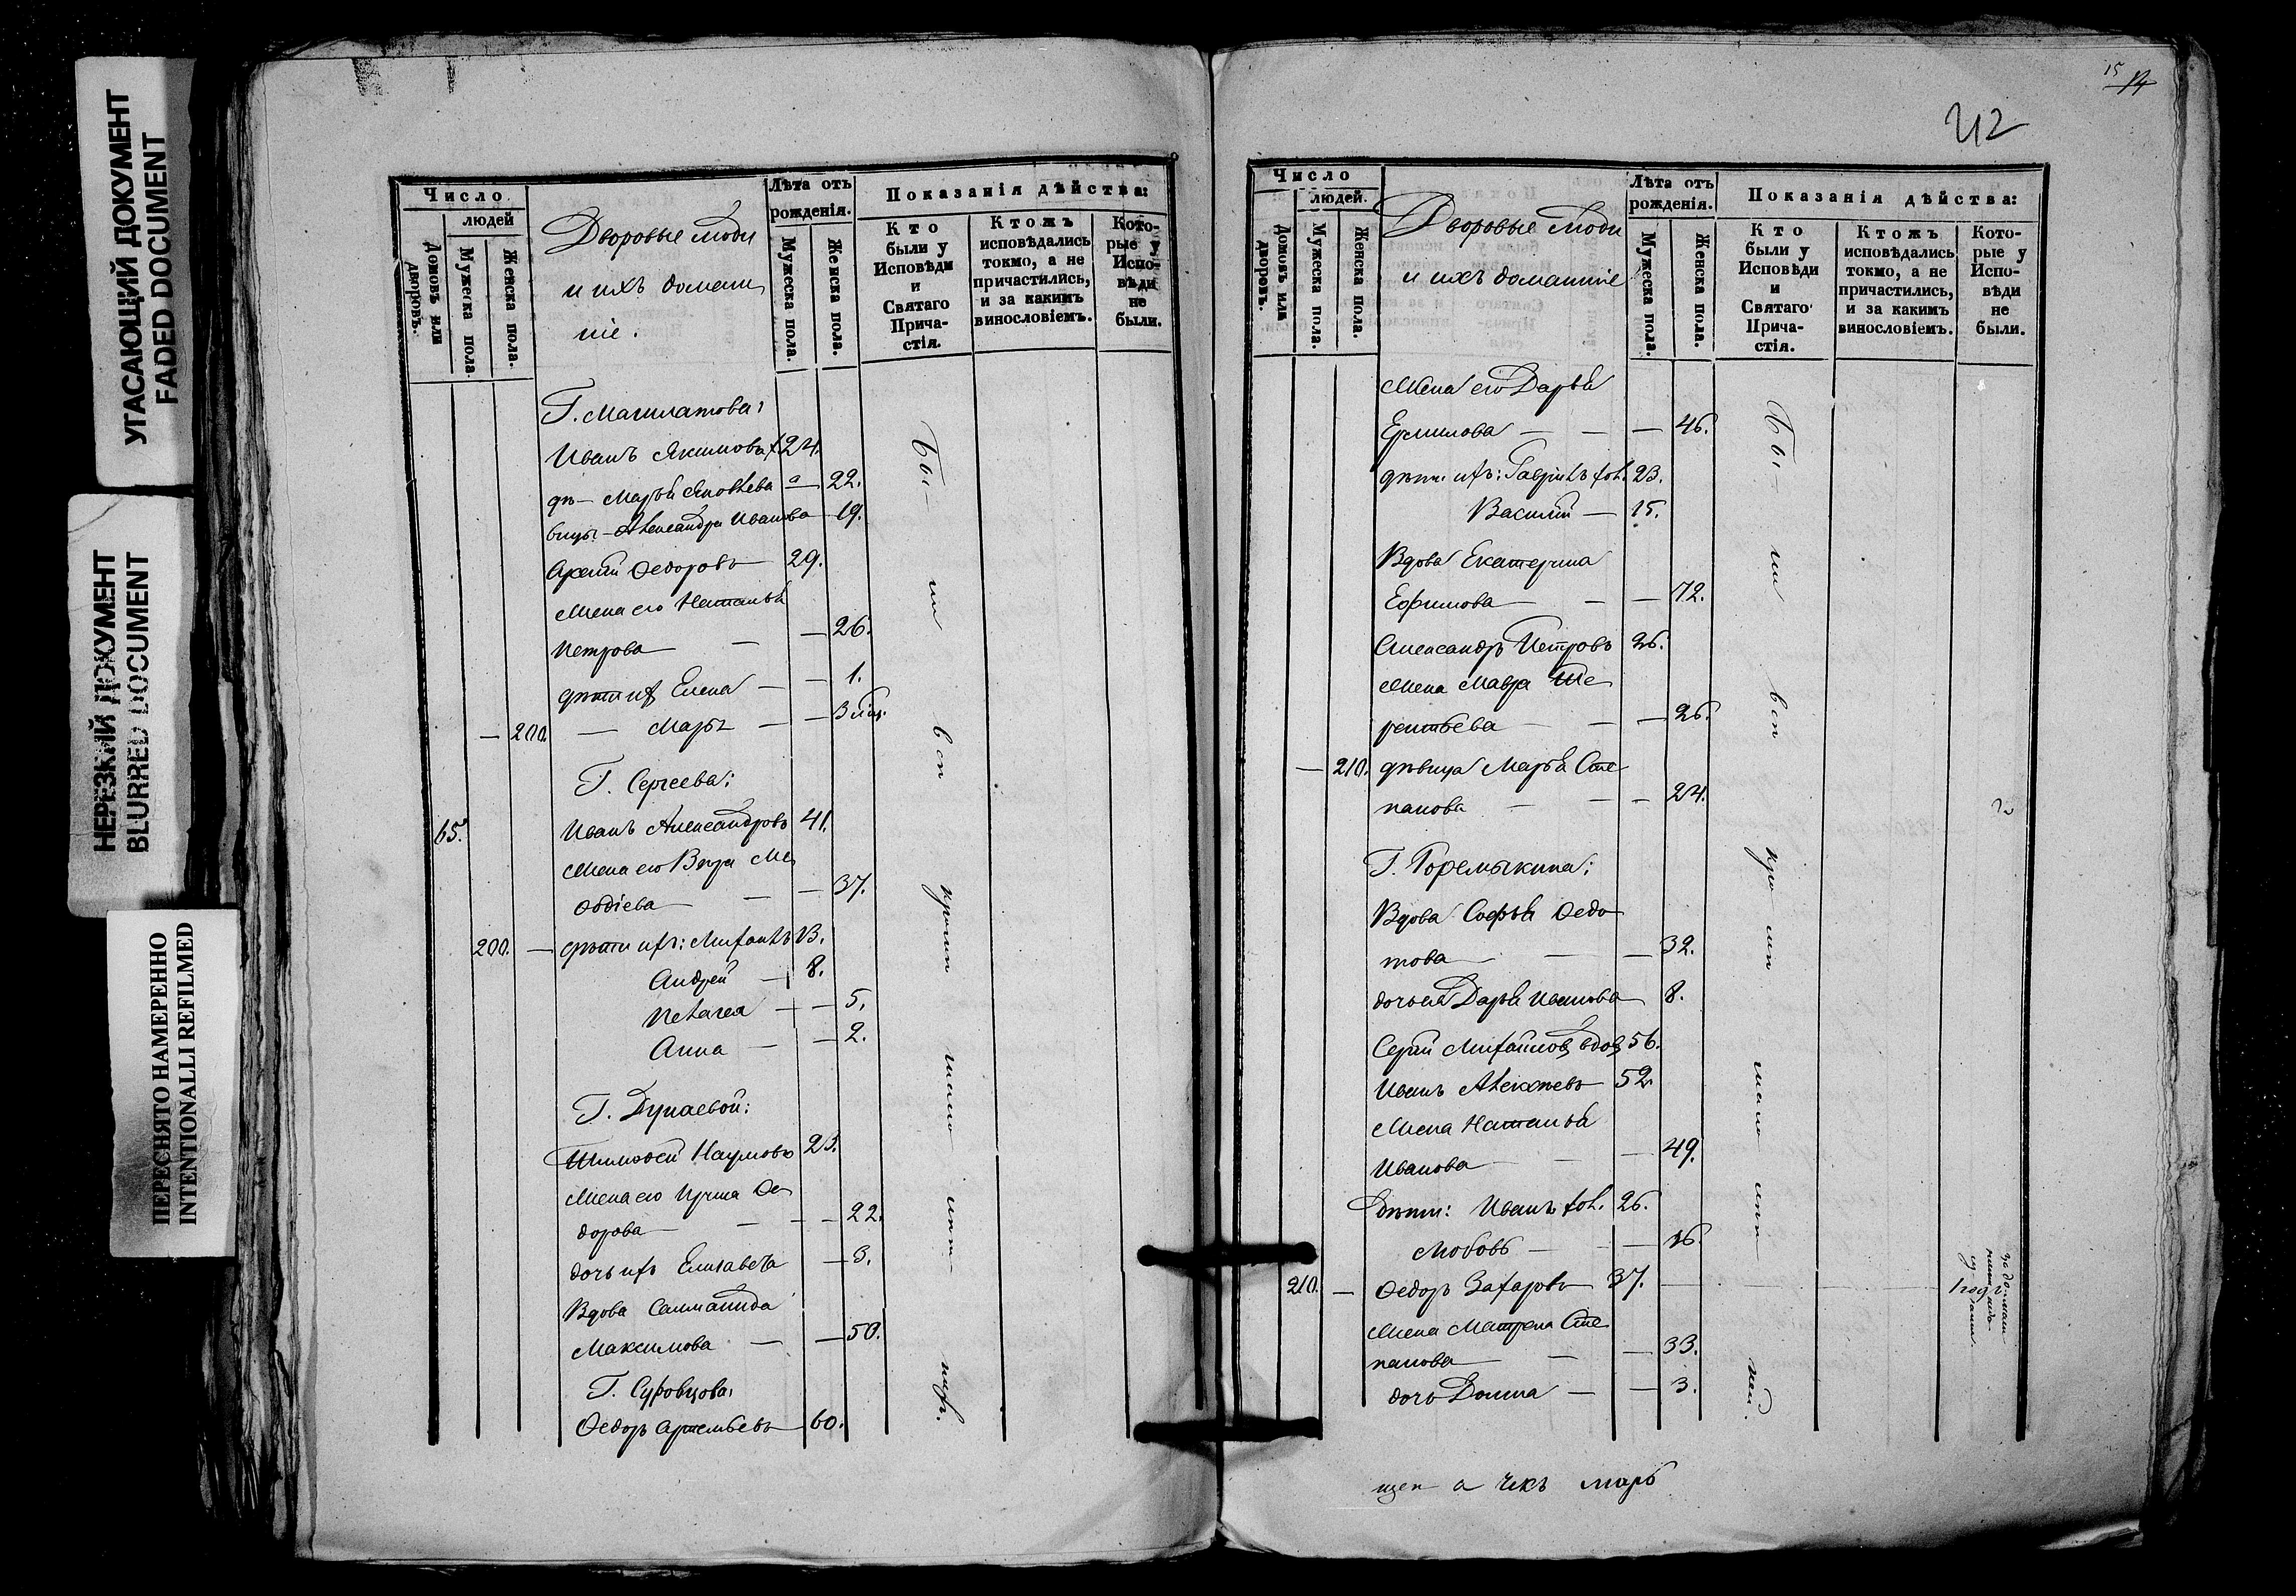 УГАСАЮЩИЙ ДОКУМЕНТ
FADED DOCUMENT
НЕРЕЗКИЙ ДОКУМЕНТ
BLURRED DOCUMENT
ПЕРЕСНЯТО НАМЕРЕННО
INTENTIONALLI REFILMED
Число
людей
Домовъ или дворовъ.
Мужеска пола.
Женска пола.
Дворовые люди
и ихъ домаш
ніе.
Лѣта отъ
рожденія.
Мужеска пола.
Женска пола.
Показанія дѣйства:
Кто
были у
Исповѣди
и
Святаго
Прича-
стія.
Ктожъ
исповѣдались
токмо, а не
причастились,
и за какимъ
винословіемъ.
Кото-
рые у
Испо-
вѣди
не
были.
Иванъ Якимовъ 24.
Марья Яковлева 22.
Александра Иванова 19.
Ѳедоровъ 29.
Жена его Наталья
Петрова 26.
дѣти ихъ Елена 1.
200. Марья 3
Г. Сергеева:
65. Иванъ Александровъ 41.
Жена его Вѣра Ме
ѳодіева 37.
200. дѣти ихъ: Михаилъ 13.
Андрей 8.
Пелагея 5.
Анна 2.
Г. Дунаевой:
Тимоѳей Наумовъ 23.
Жена его Ирина Ѳе
дорова 22.
дочь ихъ Елизавета 3.
Вдова
Максимова 50.
Г. Суровцова:
Ѳедоръ Артемьевъ 60.
Бы-ли всѣ кромѣ мало лѣт- нихъ.
15 14
42
Число
людей.
Домовъ или дворовъ.
Мужеска пола.
Женска пола.
Дворовые люди
и ихъ домашніе
Лѣта отъ
рожденія.
Мужеска пола.
Женска пола.
Показанія дѣйства:
Кто
были у
Исповѣди
и
Святаго
Прича-
стія.
Ктожъ
исповѣдались
токмо, а не
причастились,
и за какимъ
винословіемъ.
Кото-
рые у
Испо-
вѣди
не
были.
Жена его Дарья
Ермилова 46.
дѣти ихъ: Гавріилъ хол. 23.
Василій 15.
Вдова Екатерина
Ефимова 72.
Александръ Петровъ 26.
Жена Мавра Те
рентьева 26.
210. дѣвица Марья Сте
панова 24.
Г. Горемыкина:
Вдова Софья Ѳедо
това 32.
дочь ея Дарья Иванова 8.
Сергій Михайловъ вдов 56.
Иванъ Алексѣевъ 52.
Жена Наталья
Иванова 49.
Дѣти: Иванъ хол. 26.
Любовь 16.
210. Ѳедоръ Захаровъ 37. 1 годъ
Жена Матрена Сте
панова 33.
дочь Домна 3.
Бы-ли всѣ кро мѣ мало лѣт ней.